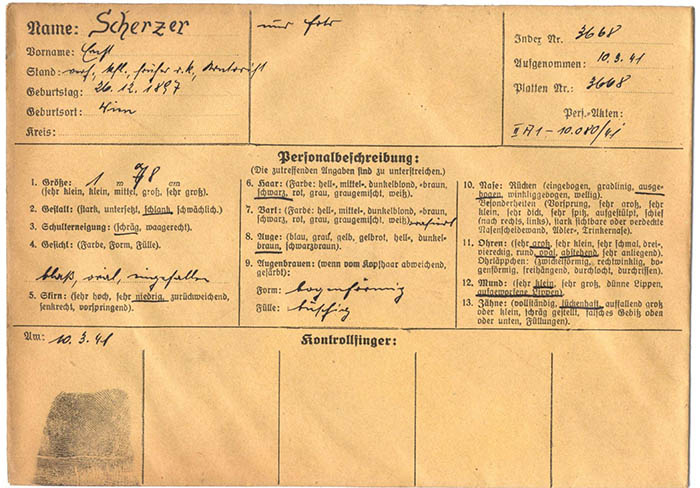 Name: Scherzer
nur Foto
Vorname: Ernst
Stand: verh., kfl., früher r.k.,
Geburtstag: 26.12.1897
Geburtsort: Wien
Kreis:
Index Nr. 3668
Aufgenommen: 10.3.41
Platten Nr.: 3668
Pers.-Akten:
II A1 - 10.080/41
Personalbeschreibung:
(Die zutreffenden Angaben sind zu unterstreichen.)
1. Größe: 1 m 78 cm
(sehr klein, klein, mittel, groß, sehr groß).
2. Gestalt: (stark, untersetzt, schlank, schwächlich.)
3. Schulterneigung: (schräg, waagerecht.)
4. Gesicht: (Farbe, Form, Fülle).
blaß, oval, eingefallen
5. Stirn: (sehr hoch, sehr niedrig, zurückweichend,
senkrecht, vorspringend).
6. Haar: (Farbe: hell-, mittel-, dunkelblond, -braun,
schwarz, rot, grau, graugemischt, weiß).
7. Bart: (Farbe: hell-, mittel-, dunkelblond, -braun,
schwarz, rot, grau, graugemischt, weiß) rasiert
8. Auge: (blau, grau, gelb, gelbrot, hell-, dunkel-
braun, schwarzbraun).
9. Augenbrauen: (wenn vom Kopfhaar abweichend,
gefärbt):
Form: bogenförmig
Fülle: buschig
10. Nase: Rücken (eingebogen, gradlinig, ausge-
bogen, winkliggebogen, wellig).
Besonderheiten (Vorsprung, sehr groß, sehr
klein, sehr dick, sehr spitz, aufgestülpt, schief
nach rechts, links), stark sichtbare oder verdeckte
Nasenscheidewand, Adler-, Trinkernase).
11. Ohren: (sehr groß, sehr klein, sehr schmal, drei-,
viereckig, rund, oval, abstehend, sehr anliegend).
Ohrläppchen: (zwickelförmig, rechtwinklig, bo-
genförmig, freihängend, durchlocht, durchrissen).
12. Mund: (sehr klein, sehr groß, dünne Lippen,
aufgeworfene Lippen).
13. Zähne: (vollständig, lückenhaft, auffallend groß
oder klein, schräg gestellt, falsches Gebiß oben
oder unten, Füllungen).
Am: 10.3.41
Kontrollfinger: